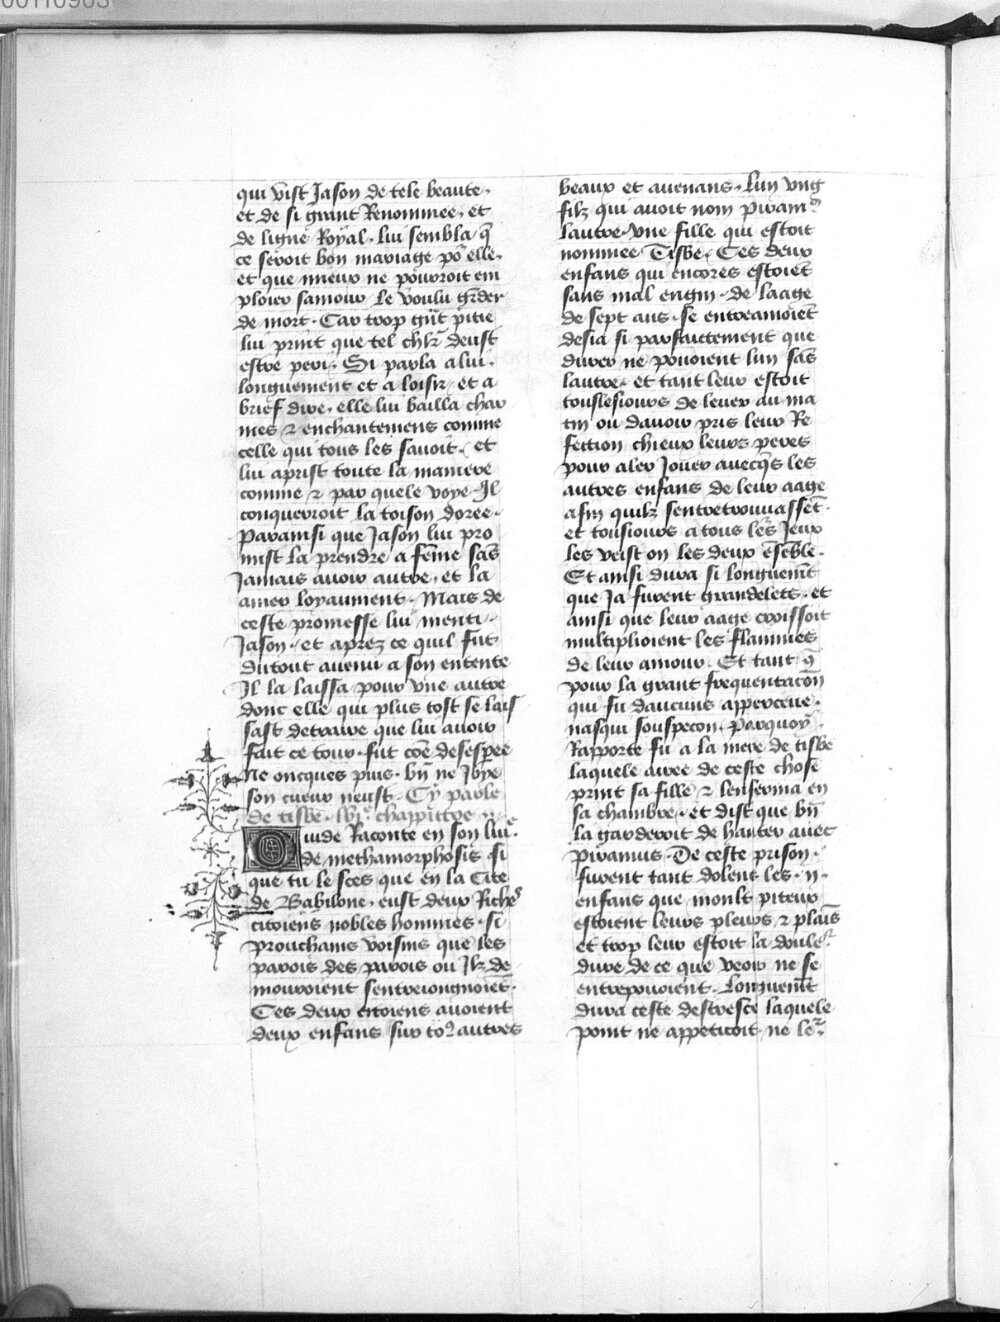 00110903
qui vist Jason de tele beaute.
et de si grant Renommee. et
de ligne Royal. lui sembla q̄
ce seroit bon mariage po᷑ elle.
et que mieux ne pouroit em
ploier samour le voulu gᷓder
de mort. Car trop gᷓt pitie
lui print que tel chl᷑r deust
estre peri. Si parla a lui.
longuement et a loisir et a
brief dire. elle lui bailla char
mes ⁊ enchantemens comme
celle qui tous les sauoit. et
lui aprist toute la maniere
comme ⁊ par quele voye Il
conquerroit la toison doree.
Parainsi que Jason lui pro
mist la prendre a fēme sās
Jamais auoir autre. et la
amer loyaument. Mais de
ceste promesse lui menti.
Jason. et aprez ce quil fut
dutout auenu a son entente
Il la laissa pour vne autre
donc elle qui plus tost se lais
sast detraire que lui auoir
fait ce tour. fut cōe desesperee
Ne oncques puis. bn̄ ne Joye
son cueur neust. Cy parle
de tisbe. lvi. chappittre
Ouide Raconte en son liu᷑e
de methamorphosis si
que tu le sces que en la Cite
de Babilone. eust deux Riches
citoiens nobles hommes. si
prouchains voisins que les
parois des parois ou Ilz de
mouroient sentreioignoiēt.
Ces deux citoiens auoient
deux enfans sur to⁹ autres
beaux et auenans. Lun vng
filz qui auoit nom piram⁹
lautre vne fille qui estoit
nommee Tisbe. Ces deux
enfans qui encores estoiēt
sans mal engin. de laage
de sept ans. se entreamoiēt
desia si parfaictement que
durer ne pouoient lun sās
lautre. et tant leur estoit
touslesiours de leuer au ma
tin ou dauoir pris leur Re
fection chieux leurs peres
pour aler Jouer auecq̄s les
autres enfans de leur aage
afin quilz sentretrouuassēt.
et tousiours a tous leᷣs Jeux
les veist on les deux ensēble.
Et ainsi dura si longuem̄t
que Ja furent grandeletz. et
ainsi que leur aage croissoit
multiplioient les flammes
de leur amour. Et tant q̄
pour la grant frequentacōn
qui fu daucuns apperceue.
nasqui souspecon. Parquoy
Rapporte fu a la mere de tisbe
laquele airee de ceste chose
print sa fille ⁊ lenferma en
sa chambre. et dist que bn̄
la garderoit de hanter auec
piramus. De ceste prison.
furent tant dolent les .ii.
enfans que moult piteux
estoient leurs pleurs ⁊ plais
et trop leur estoit la doule᷑
dure de ce que veoir ne se
entrepouoient. Longuem̄t
dura ceste destresce laquele
point ne appeticoit. ne le᷑.